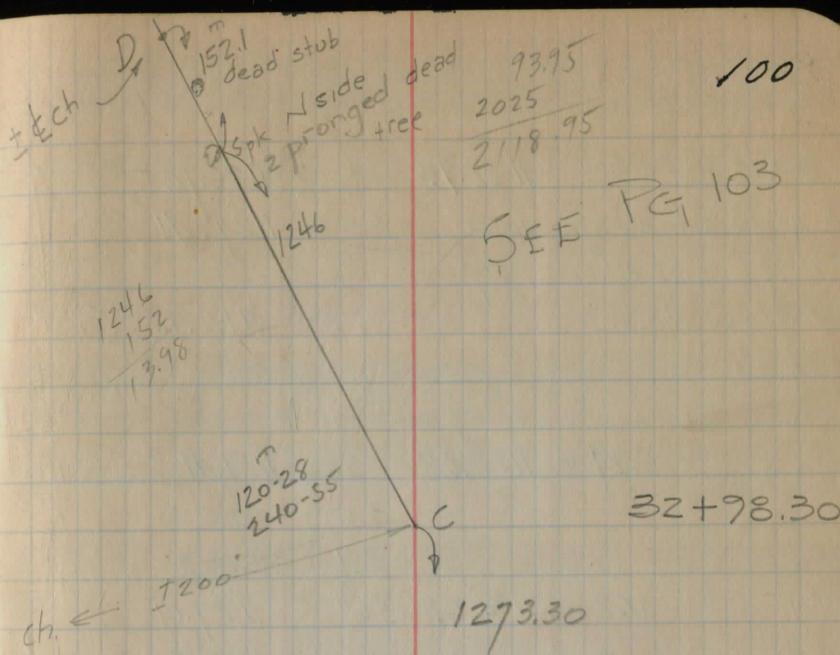 100
D
152.1
dead stub
± ¢ ch
Spk N side
2 pronged dead
tree
93.95
2025
2118.95
SEE PG 103
1246
1246
152
13.98
120-28
240-55
C
32+98.30
±200
ch.
1273.30